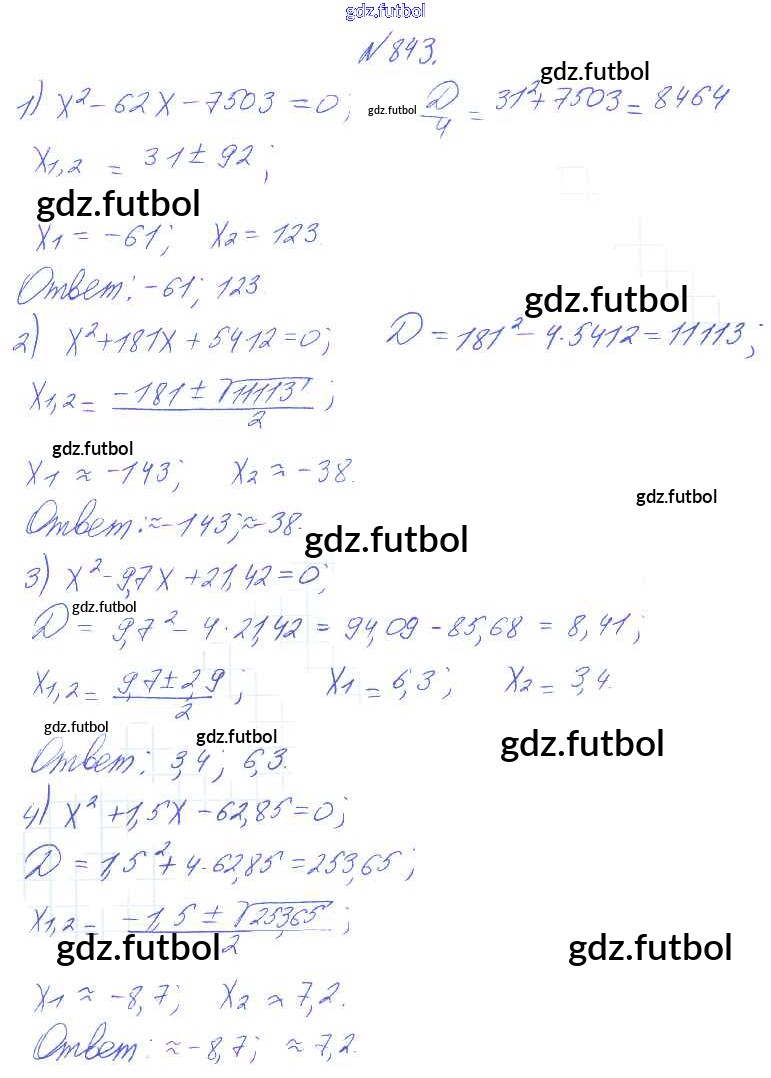 gdz.futbol
N 843.
gdz.futbol
1) x² - 62x - 7503 = 0; gdz.futbol D/4 = 31² + 7503 = 8464
x1,2 = 31 ± 92;
gdz.futbol
x1 = -61; x2 = 123.
Ответ: -61; 123.
gdz.futbol
2) x² + 181x + 5412 = 0; D = 181² - 4·5412 = 11113;
x1,2 = (-181 ± √11113)/2;
gdz.futbol
x1 ≈ -143; x2 ≈ -38.
gdz.futbol
Ответ: ≈ -143; ≈ -38.
gdz.futbol
3) x² - 9,7x + 21,42 = 0;
gdz.futbol
D = 9,7² - 4·21,42 = 94,09 - 85,68 = 8,41;
x1,2 = (9,7 ± 2,9)/2; x1 = 6,3; x2 = 3,4.
gdz.futbol
gdz.futbol
gdz.futbol
Ответ: 3,4; 6,3.
4) x² + 1,5x - 62,85 = 0;
D = 1,5² + 4·62,85 = 253,65;
x1,2 = (-1,5 ± √253,65)/2;
gdz.futbol
gdz.futbol
x1 ≈ -8,7; x2 ≈ 7,2.
Ответ: ≈ -8,7; ≈ 7,2.